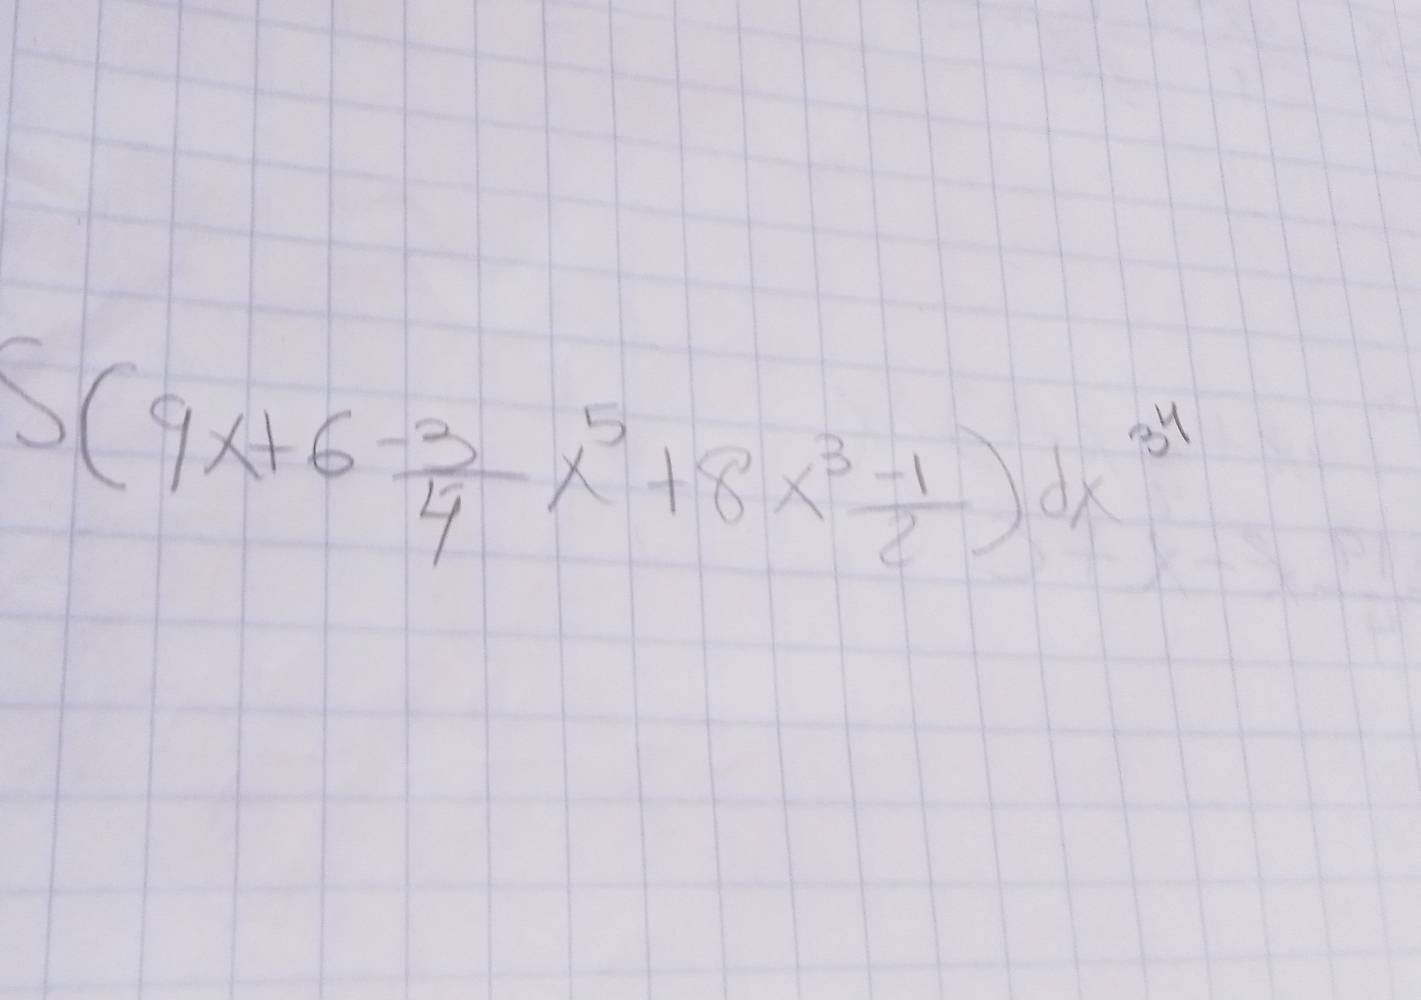 S(9x+6 -3/4 x^5 +8x^3 -1/2) dx^34